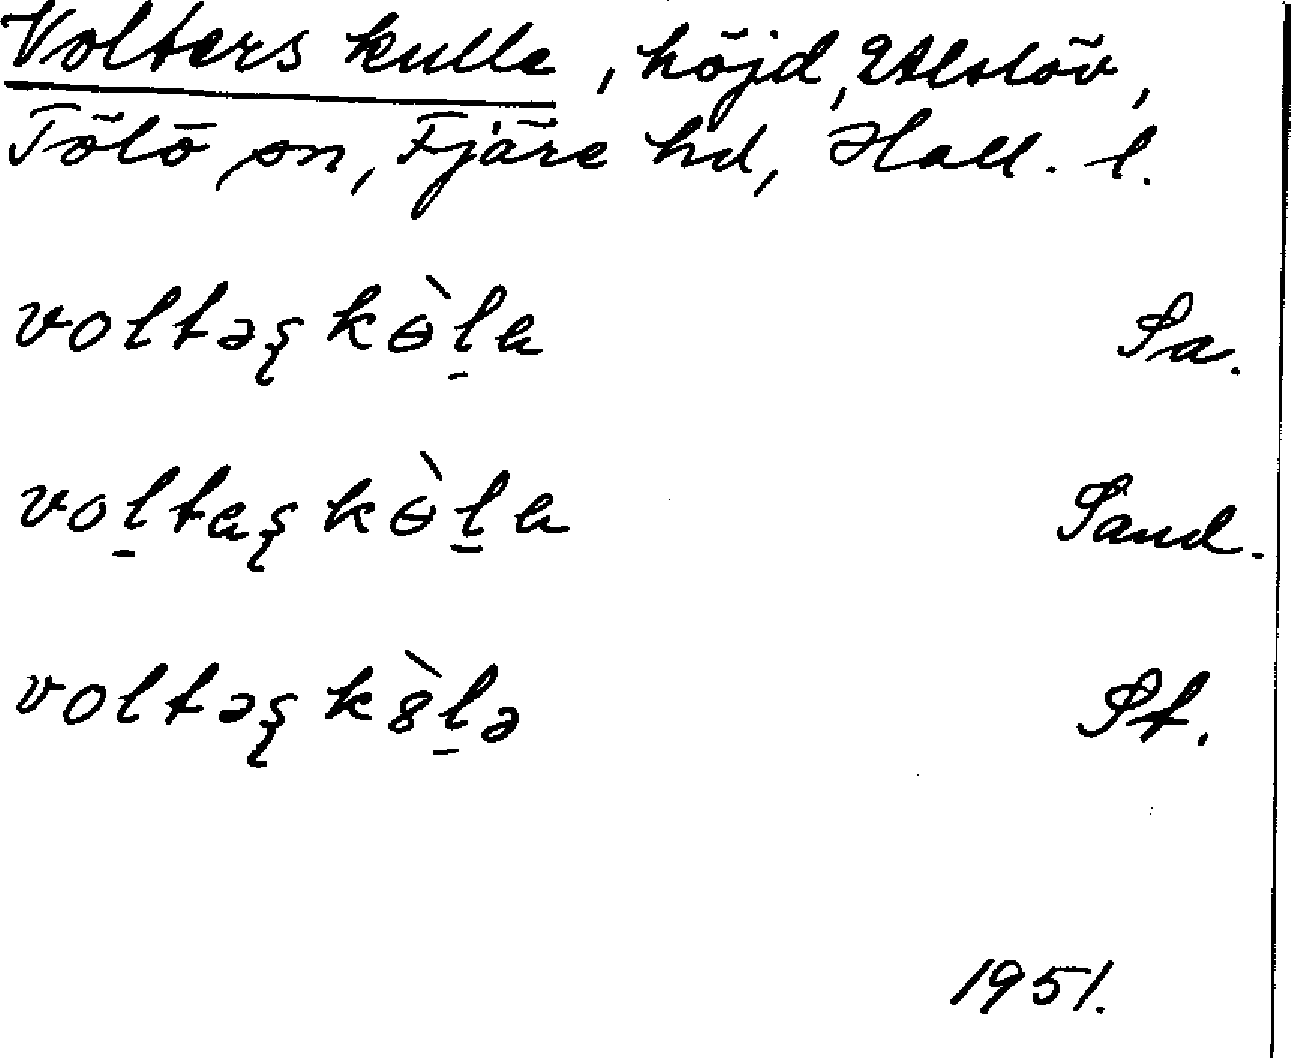 Volters kulle, höjd, Utlslöv,
Tölö sn, Fjäre hd, Hall. l.
voltəʂ kɵ̀l̠a Sa.
vol̠taʂ kɵ̀l̠a Sand.
voltəʂ k8̀l̠ə St.
1951.